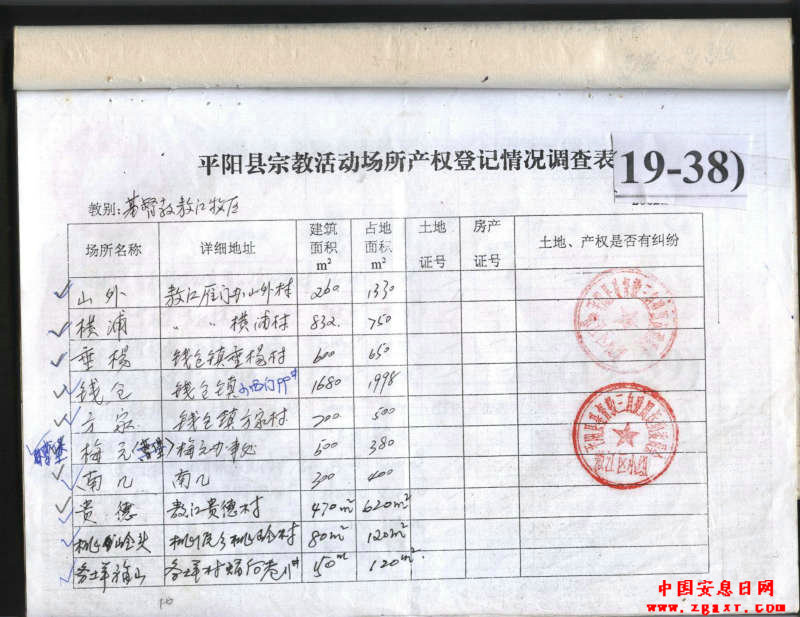 平阳县宗教活动场所产权登记情况调查表
19-38)
教别:基督教敖江牧区
场所名称 详细地址 建筑面积 m² 占地面积 m² 土地证号 房产证号 土地、产权是否有纠纷
山外 敖江雁门办山外村 260 1330
横浦 〃 〃 横浦村 832 750
垂杨 钱仓镇垂杨村 600 650
钱仓 钱仓镇 1680 1998
方家 钱仓镇方家村 700 500
梅元 梅元办事处 500 380
南儿 南儿 300 400
贵德 敖江贵德村 470m² 620m²
80m² 120m²
50m² 120m²
中国安息日网
www.zgaxr.com